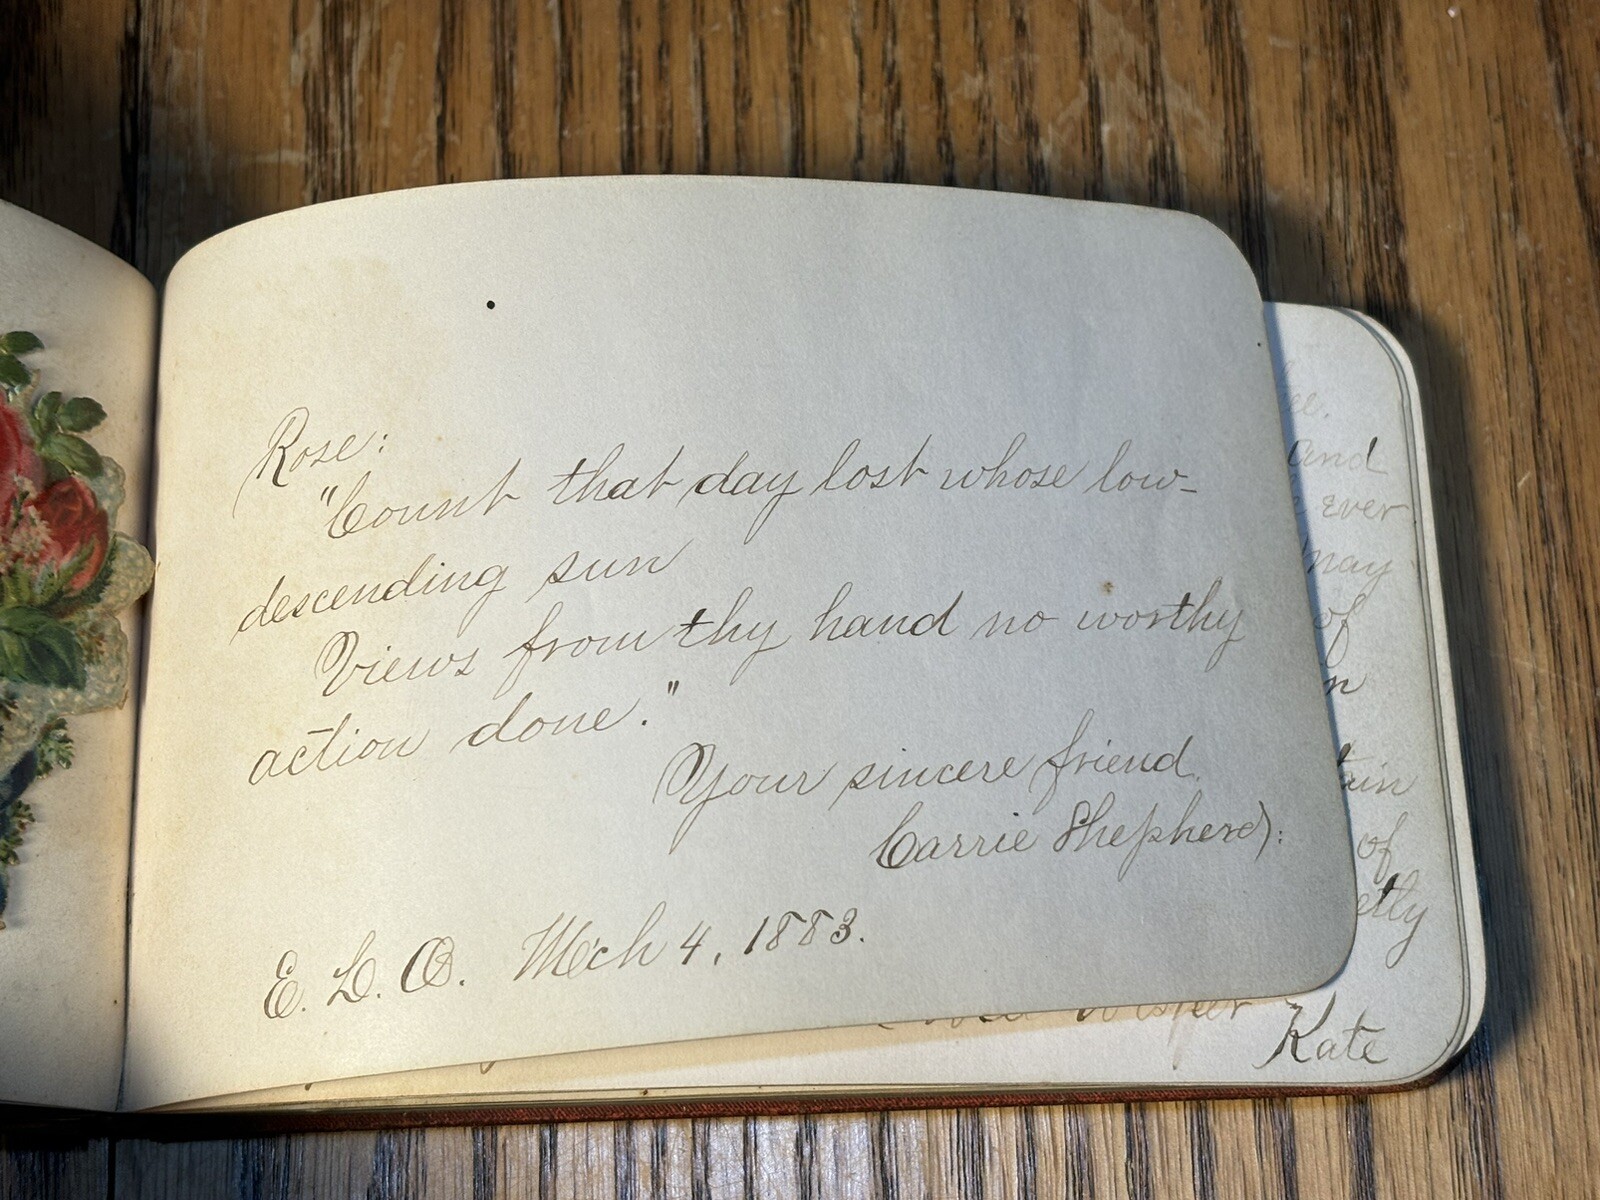 Rose:
"Count that day lost whose low-
descending sun
Views from thy hand no worthy
action done."
Your sincere friend
Carrie Shepherd:
E. L. O. Mch 4, 1883.
and
ever
may
of
of
Kate